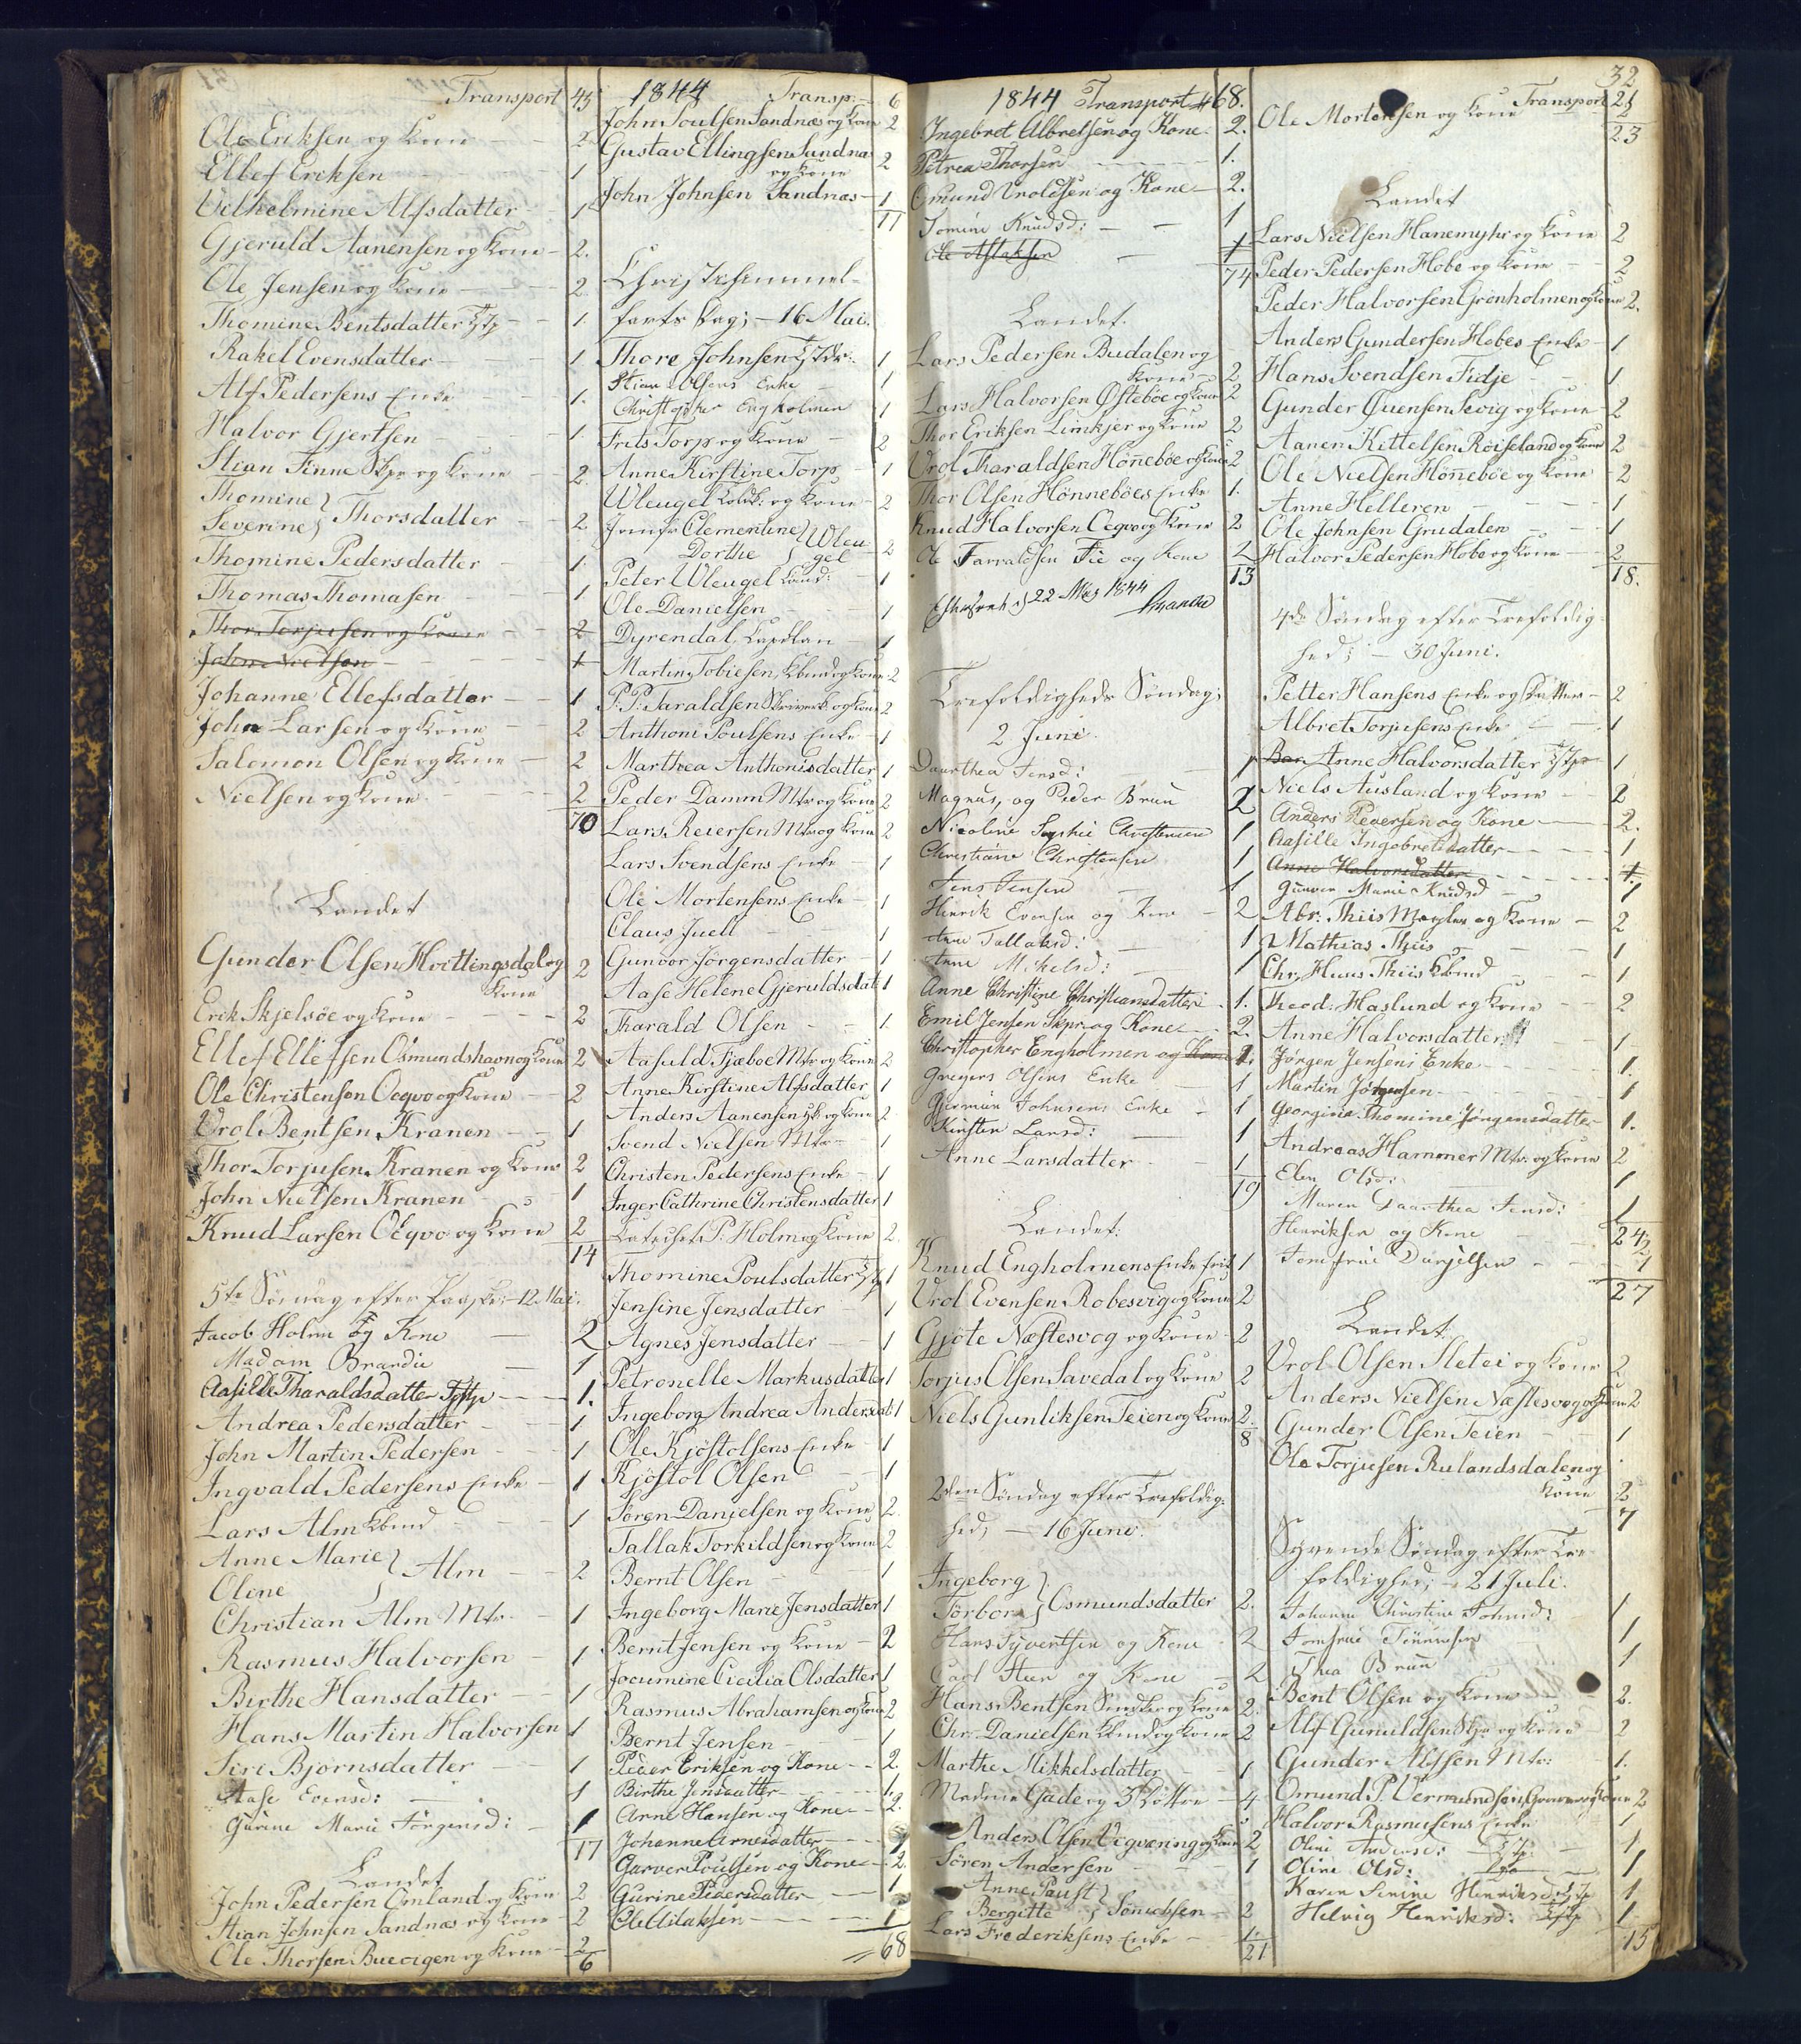 Transport 43
Ole Eriksen og Kone 2
Ellef Eriksen 1
Vilhelmine Alfsdatter 1
Gjeruld Aanensen og Kone 2.
Ole Jensen og Kone 2
Thomine Bentsdatter Tjtp 1.
Rakel Evensdatter 1
Alf Pedersens Enke 1.
Halvor Gjertsen 1
Stian Finne Skpr og Kone 2.
Thomine }
Severine } Thorsdatter 2
Thomine Pedersdatter 1.
Thomas Thomasen 1
Thor Torjusen og Kone 2
John Nielsen 1
Johanne Ellefsdatter 1
John Larsen og Kone 2
Salomon Olsen og Kone 2
Nielsen og Kone 2
70
Landet
Gunder Olsen Hvittingsdal og
Kone 2
Erik Skjelsöe og Kone 2
Ellef Ellefsen Osmundshavn og Kone 2
Ole Christensen Ocqvo og Kone 2
Vrol Bentsen Kranen 1
Thor Torjusen Kranen og Kone 2
John Nielsen Kranen 1
Knud Larsen Ocqvo og Kone 2
14
5te Söndag efter Paaske; - 12 Mai.
Jacob Holm og Kone 2
Madam Brandie 1
Aasille Tharaldsdatter Tjtp 1.
Andrea Pedersdatter 1
John Martin Pedersen 1
Ingvald Pedersens Enke 1
Lars Alm Kbmd 1
Anne Marie }
Oline } Alm 2
Christian Alm Mtr. 1
Rasmus Halvorsen 1
Birthe Hansdatter 1
Hans Martin Halvorsen 1
Siri Bjornsdatter 1
Aase Evensd: 1
Gurine Marie Jörgensd: 1
17
Landet
John Pedersen Omland og Kone 2
Stian Johnsen Sandnæs og Kone 2
Ole Thorsen Buecigen og Kone 2
6
1844 Transp: 6
John Poulsen Sandnæs og Kone 2
Gustav Ellingsen Sandnæs
og Kone 2
John Johnsen Sandnæs 1
11
Christi Himmel-
farts Dag; - 16 Mai.
Thore Johnsen 1
Stian Olsens Enke 1
Christopher Engholmen 1
Frits Torp og Kone 2
Anne Kirstine Torp 1
Wleugel og Kone 2
Jomfr Clementine }
Dorthe } Wleu-
gel 2
Peter Wleugel 1
Ole Danielsen 1
Dyrendal 1
Martin Tobiesen Kbmd og Kone 2
P: P: Taraldsen og Kone 2
Anthoni Poulsens Enke 1
Marthea Anthonisdatter 1
Peder Damm Mtr og Kone 2
Lars Reiersen Mtr og Kone 2
Lars Svendsens Enke 1
Ole Mortensens Enke 1
Claus Juell 1
Gunvor Jörgensdatter 1
Aase Helene Gjeruldsdatt 1
Tharald Olsen 1.
Aasuld Fjæboe Mtr og Kone 2
Anne Kirstine Alfsdatter 1
Anders Aanensen og Kone 2
Svend Nielsen Mtr 1
Christen Pedersens Enke 1
Inger Cathrine Christensdatter 1
P: Holm og Kone 2.
Thomine Poulsdatter Tjtp 1
Jensine Jensdatter 1
Agnes Jensdatter 1
Petronelle Markusdatter 1
Ingeborg Andrea Andersdat 1
Ole Kjöstolsens Enke 1
Kjöstol Olsen 1
Sören Danielsen og Kone 2.
Tallak Torkildsen og Kone 2
Bernt Olsen 1
Ingeborg Marie Jensdatter 1
Bernt Jensen og Kone 2
Jocumine Cicilia Olsdatter 1
Rasmus Abrahamsen og Kone 2
Bernt Jensen 1
Peder Eriksen og Kone 2.
Birthe Jensdatter 1.
Arne Hansen og Kone 2.
Johanne Arnesdatter 1
Garver Poulsen og Kone 2.
Gurine Pedersdatter 1
Ole Aslaksen 1
68
1844 Transport 68.
Ingebret Albretsen og Kone 2.
Petrea Thorsen 1.
Omund Vroldsen og Kone 2.
Tomine Knudsd: 1
Ole Aslaksen 1
74
Landet.
Lars Pedersen Budalen og
Kone 2
Lars Halvorsen Östeböe og Kone 2
Thor Eriksen Limkjer og Kone 2
Vrol Tharaldsen Hönneböe og Kone 2
Thor Olsen Hönneböes Enke 1.
Knud Halvorsen Ocqvo og Kone 2
Ole Tarraldsen Fie og Kone 2
13
22 Mai 1844
Trefoldigheds Söndag;
2 Juni.
Daarthea Jensd: 1
Magnus, og Peder Bruun 2
Nicoline Sophie Christensen 1
Christiane Christensen 1
Jens Jensen 1
Henrik Evensen og Kone 2
Anne Tallaksd: 1
Anne Mikelsd: 1
Anne Christine Christiansdatter 1.
Emil Jensen Skpr og Kone 2.
Christopher Engholmen og Kone 1.
Gregers Olsens Enke 1
Germün Johnsens Enke 1
Kirsten Larsd: 1
Anne Larsdatter 1
19
Landet.
Knud Engholmens Enke 1
Vrol Evensen Robesvig og Kone 2
Gjöte Næstesvog og Kone 2
Torjus Olsen Savedal og Kone 2
Niels Gunliksen Teien og Kone 2
8
2den Söndag efter Trefoldig-
hed; - 16 Juni.
Ingeborg }
Torbor } Osmundsdatter 2.
Hans Syvertsen og Kone 2
Carl Steen og Kone 2
Hans Bentsen og Kone 2.
Chr: Danielsen Kbmd og Kone 2
Marthe Mikkelsdatter 1
Madame Gade og 3 Döttre 4
Anders Olsen Vegværing og Kone 2
Sören Andersen 1
Anne Paust }
Bergitte } Sönichsen 2
Lars Frederiksens Enke 1.
21
32
Transport 21
Ole Mortensen og Kone 2
23
Landet
Lars Nielsen Hanemyhr og Kone 2
Peder Pedersen Hobe og Kone 2
Peder Halvorsen Grönholmen og Kone 2.
Anders Gundersen Hobes Enke 1
Hans Svendsen Fidje 1
Gunder Qvensen Sevig og Kone 2
Aanen Kittelsen Röiseland og Kone 2
Ole Nielsen Hönneböe og Kone 2
Anne Helleren 1
Ole Johnsen Grudalen 1
Halvor Pedersen Hobe og Kone 2
18.
4de Söndag efter Trefoldig-
hed; - 30 Juni.
Petter Hansens Enke og Datter 2
Albret Torjusens Enke 1
Anne Halvorsdatter Tjtp 1
Niels Ausland og Kone 2
Anders Reiersen og Kone 2.
Aasille Ingebretsdatter 1
Anne Halvorsdatter 1.
Gunvor Marie Knudsd 1
Abr: Thiis Mægler og Kone 2
Mathias Thiis 1
Chr: Huus Thiis Kbmd 1
Theod: Haslund og Kone 2
Anne Halvorsdatter 1
Jörgen Jensens Enke 1.
Martin Jörgensen 1
Georgine Thomine Jörgensdatter 1.
Andreas Hammer Mtr: og Kone 2
Elen Olsd: 1
Maren Daarthea Jensd: 1
Henriksen og Kone 2
Jomfrue Danjelsen 1
27
Landet.
Vrol Olsen Sletei og Kone 2
Anders Nielsen Næstesvog og Kone 2
Gunder Olsen Teien 1
Ole Torjusen Rulandsdalen og
Kone 2
7
Syvende Söndag efter Tre-
foldighed; - 21 Juli.
Johanne Christine Johnsd: 1
Jomfrue Tönnesen 1
Thea Bruun 1
Bent Olsen og Kone 2.
Alf Gunuldsen Skpr og Kone 2
Gunder Alfsen Mtr: 1.
Omund P. Vermundsen og Kone 2
Halvor Rasmusens Enke 1
Oline Andersd: Tjtp 1
Oline Olsd: 1
Karen Serine Henriksd: Tjtp 1
Helvig Henriksd: Tjtp 1
15